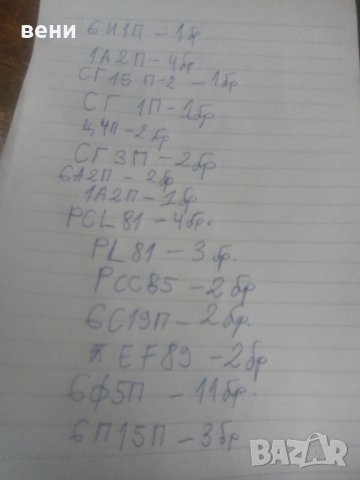 вени
6Н1П - 1бр
1А2П - 4бр
СГ15П-2 - 1бр
СГ 1П - 1бр
Ц4П - 2бр
СГ3П - 2бр
6А2П - 2бр
1А2П - 1бр
PCL81 - 4бр.
PL81 - 3бр.
PCC85 - 2бр
6С19П - 2бр.
EF89 - 2бр
6Ф5П - 11бр.
6П15П - 3бр
BAZAR